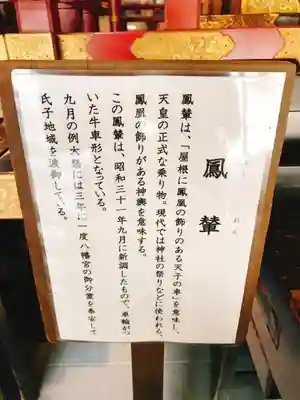 鳳輦
ほう れん
鳳輦は、「屋根に鳳凰の飾りのある天子の車」を意味し、
天皇の正式な乗り物。現代では神社の祭りなどに使われる、
鳳凰の飾りがある神輿を意味する。
この鳳輦は、昭和三十一年九月に新調したもので、車輪がつ
いた牛車形となっている。
九月の例大祭には三年に一度八幡宮の御分霊を奉安して
氏子地域を渡御している。